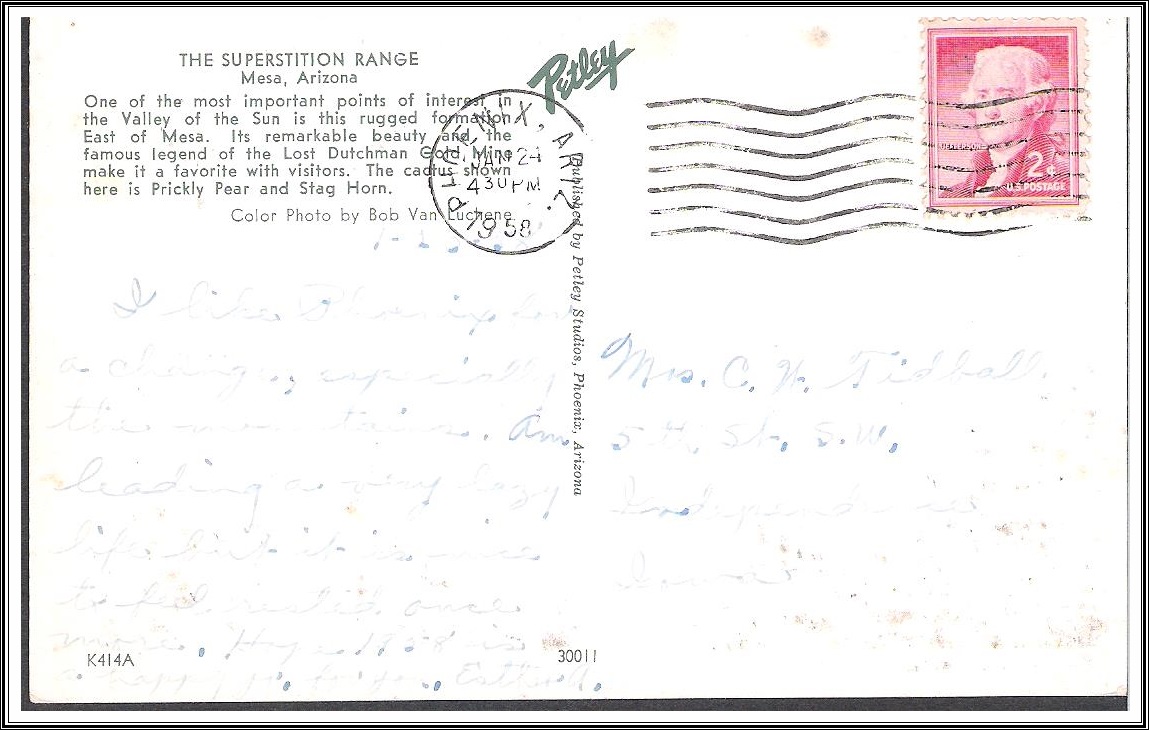 THE SUPERSTITION RANGE
Mesa, Arizona
One of the most important points of interest in
the Valley of the Sun is this rugged formation
East of Mesa. Its remarkable beauty and the
famous legend of the Lost Dutchman Gold Mine
make it a favorite with visitors. The cactus shown
here is Prickly Pear and Stag Horn.
Color Photo by Bob Van Luchene
Petley
PHOENIX, ARIZ.
JAN 24
430 PM
1958
JEFFERSON
2¢
U.S. POSTAGE
Published by Petley Studios, Phoenix, Arizona
I like Phoenix for
a change, especially
the mountains. Am
leading a very lazy
life but it is nice
to feel rested once
more. Hope 1958 is
a happy for you.
Mrs. C. W. Tidball
5th St. S.W.
Independence
Iowa
K414A
30011